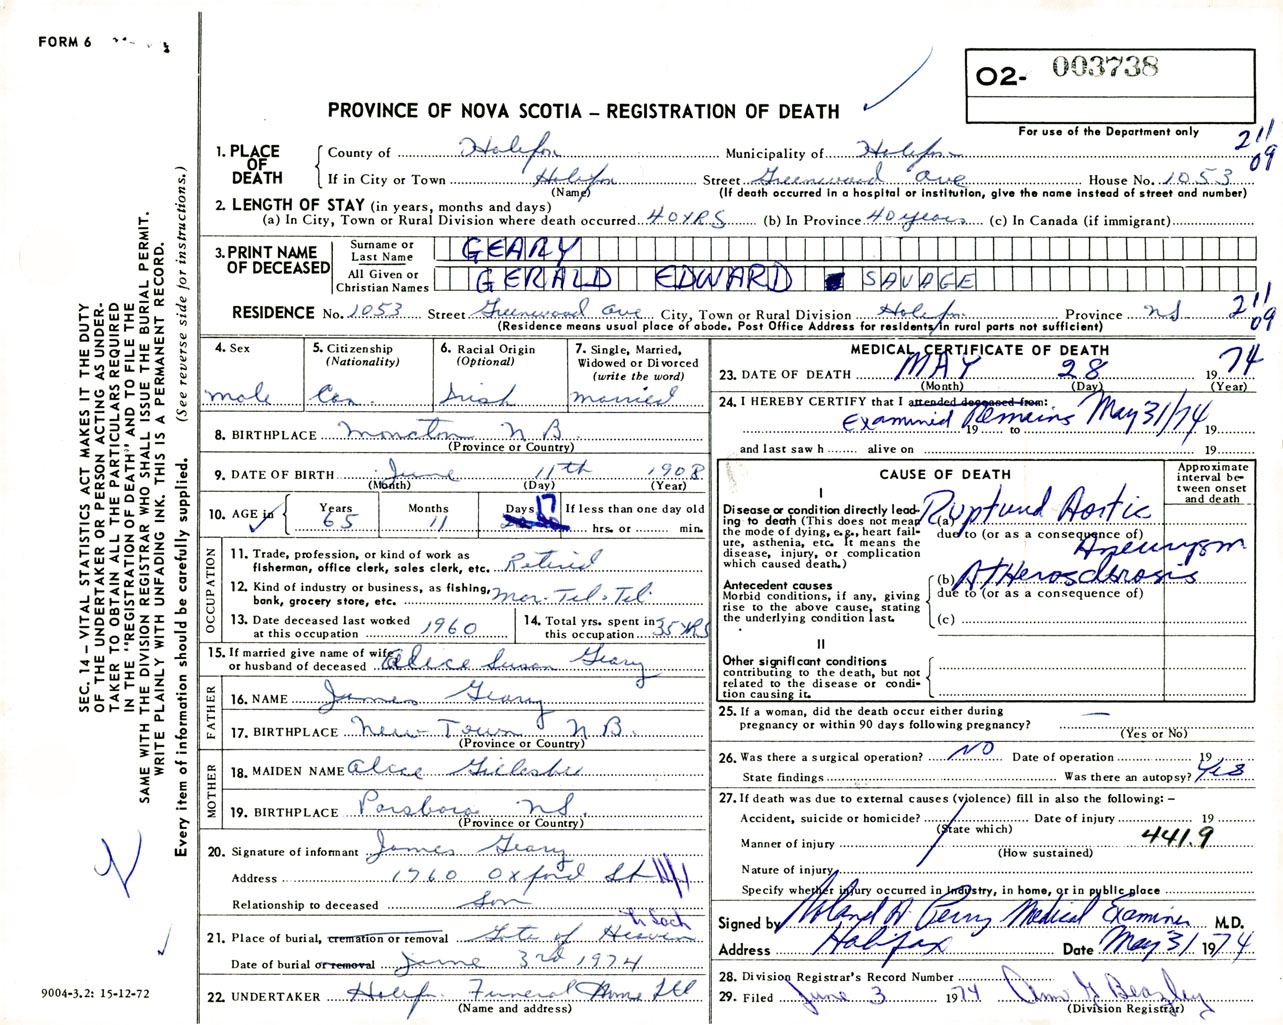 FORM 6
O2- 003738
PROVINCE OF NOVA SCOTIA – REGISTRATION OF DEATH
For use of the Department only
211
09
1. PLACE OF DEATH
County of Halifax Municipality of Halifax
If in City or Town Halifax Street Greenwood Ave House No. 1053
(Name) (If death occurred in a hospital or institution, give the name instead of street and number)
2. LENGTH OF STAY (in years, months and days)
(a) In City, Town or Rural Division where death occurred 40 YRS (b) In Province 40 years (c) In Canada (if immigrant)
3. PRINT NAME OF DECEASED
Surname or Last Name GEARY
All Given or Christian Names GERALD EDWARD SAVAGE
RESIDENCE No. 1053 Street Greenwood Ave City, Town or Rural Division Halifax Province NS
211
09
(Residence means usual place of abode. Post Office Address for residents in rural parts not sufficient)
4. Sex
male
5. Citizenship (Nationality)
Can.
6. Racial Origin (Optional)
Irish
7. Single, Married, Widowed or Divorced (write the word)
married
8. BIRTHPLACE Moncton N B
(Province or Country)
9. DATE OF BIRTH June 11th 1908
(Month) (Day) (Year)
10. AGE in Years 65 Months 11 Days 17 If less than one day old
hrs. or min.
OCCUPATION
11. Trade, profession, or kind of work as fisherman, office clerk, sales clerk, etc. Retired
12. Kind of industry or business, as fishing, bank, grocery store, etc. Mar. Tel. Tel.
13. Date deceased last worked at this occupation 1960
14. Total yrs. spent in this occupation 35 YRS
15. If married give name of wife or husband of deceased Alice Susan Geary
FATHER
16. NAME James Geary
17. BIRTHPLACE New Town N B.
(Province or Country)
MOTHER
18. MAIDEN NAME Alice
19. BIRTHPLACE Parsboro NS.
(Province or Country)
20. Signature of informant James Geary
Address 1960 Oxford St
Relationship to deceased Son
21. Place of burial, cremation or removal Gate of Heaven
Date of burial or removal June 3rd 1974
22. UNDERTAKER Halifax Funeral Home Ltd
(Name and address)
MEDICAL CERTIFICATE OF DEATH
23. DATE OF DEATH MAY 28 1974
(Month) (Day) (Year)
24. I HEREBY CERTIFY that I attended deceased from:
Examined Remains May 31/74
19 to 19
and last saw h alive on 19
CAUSE OF DEATH
Approximate interval between onset and death
I
Disease or condition directly leading to death (This does not mean the mode of dying, e.g., heart failure, asthenia, etc. It means the disease, injury, or complication which caused death.)
(a) Ruptured Aortic
due to (or as a consequence of)
Aneurysm
Antecedent causes
Morbid conditions, if any, giving rise to the above cause, stating the underlying condition last.
(b) Atherosclerosis
due to (or as a consequence of)
(c)
II
Other significant conditions contributing to the death, but not related to the disease or condition causing it.
25. If a woman, did the death occur either during pregnancy or within 90 days following pregnancy? —
(Yes or No)
26. Was there a surgical operation? NO Date of operation 19
State findings Was there an autopsy? Yes
27. If death was due to external causes (violence) fill in also the following: –
Accident, suicide or homicide? Date of injury 19
(State which)
Manner of injury 441.9
(How sustained)
Nature of injury
Specify whether injury occurred in Industry, in home, or in public place
Signed by Roland A Perry Medical Examiner M.D.
Address Halifax Date May 31 1974
28. Division Registrar's Record Number
29. Filed June 3 1974 Ann G Beazley
(Division Registrar)
SEC. 14 – VITAL STATISTICS ACT MAKES IT THE DUTY
OF THE UNDERTAKER OR PERSON ACTING AS UNDER-
TAKER TO OBTAIN ALL THE PARTICULARS REQUIRED
IN THE "REGISTRATION OF DEATH" AND TO FILE THE
SAME WITH THE DIVISION REGISTRAR WHO SHALL ISSUE THE BURIAL PERMIT.
WRITE PLAINLY WITH UNFADING INK. THIS IS A PERMANENT RECORD.
Every item of information should be carefully supplied. (See reverse side for instructions.)
9004-3.2: 15-12-72